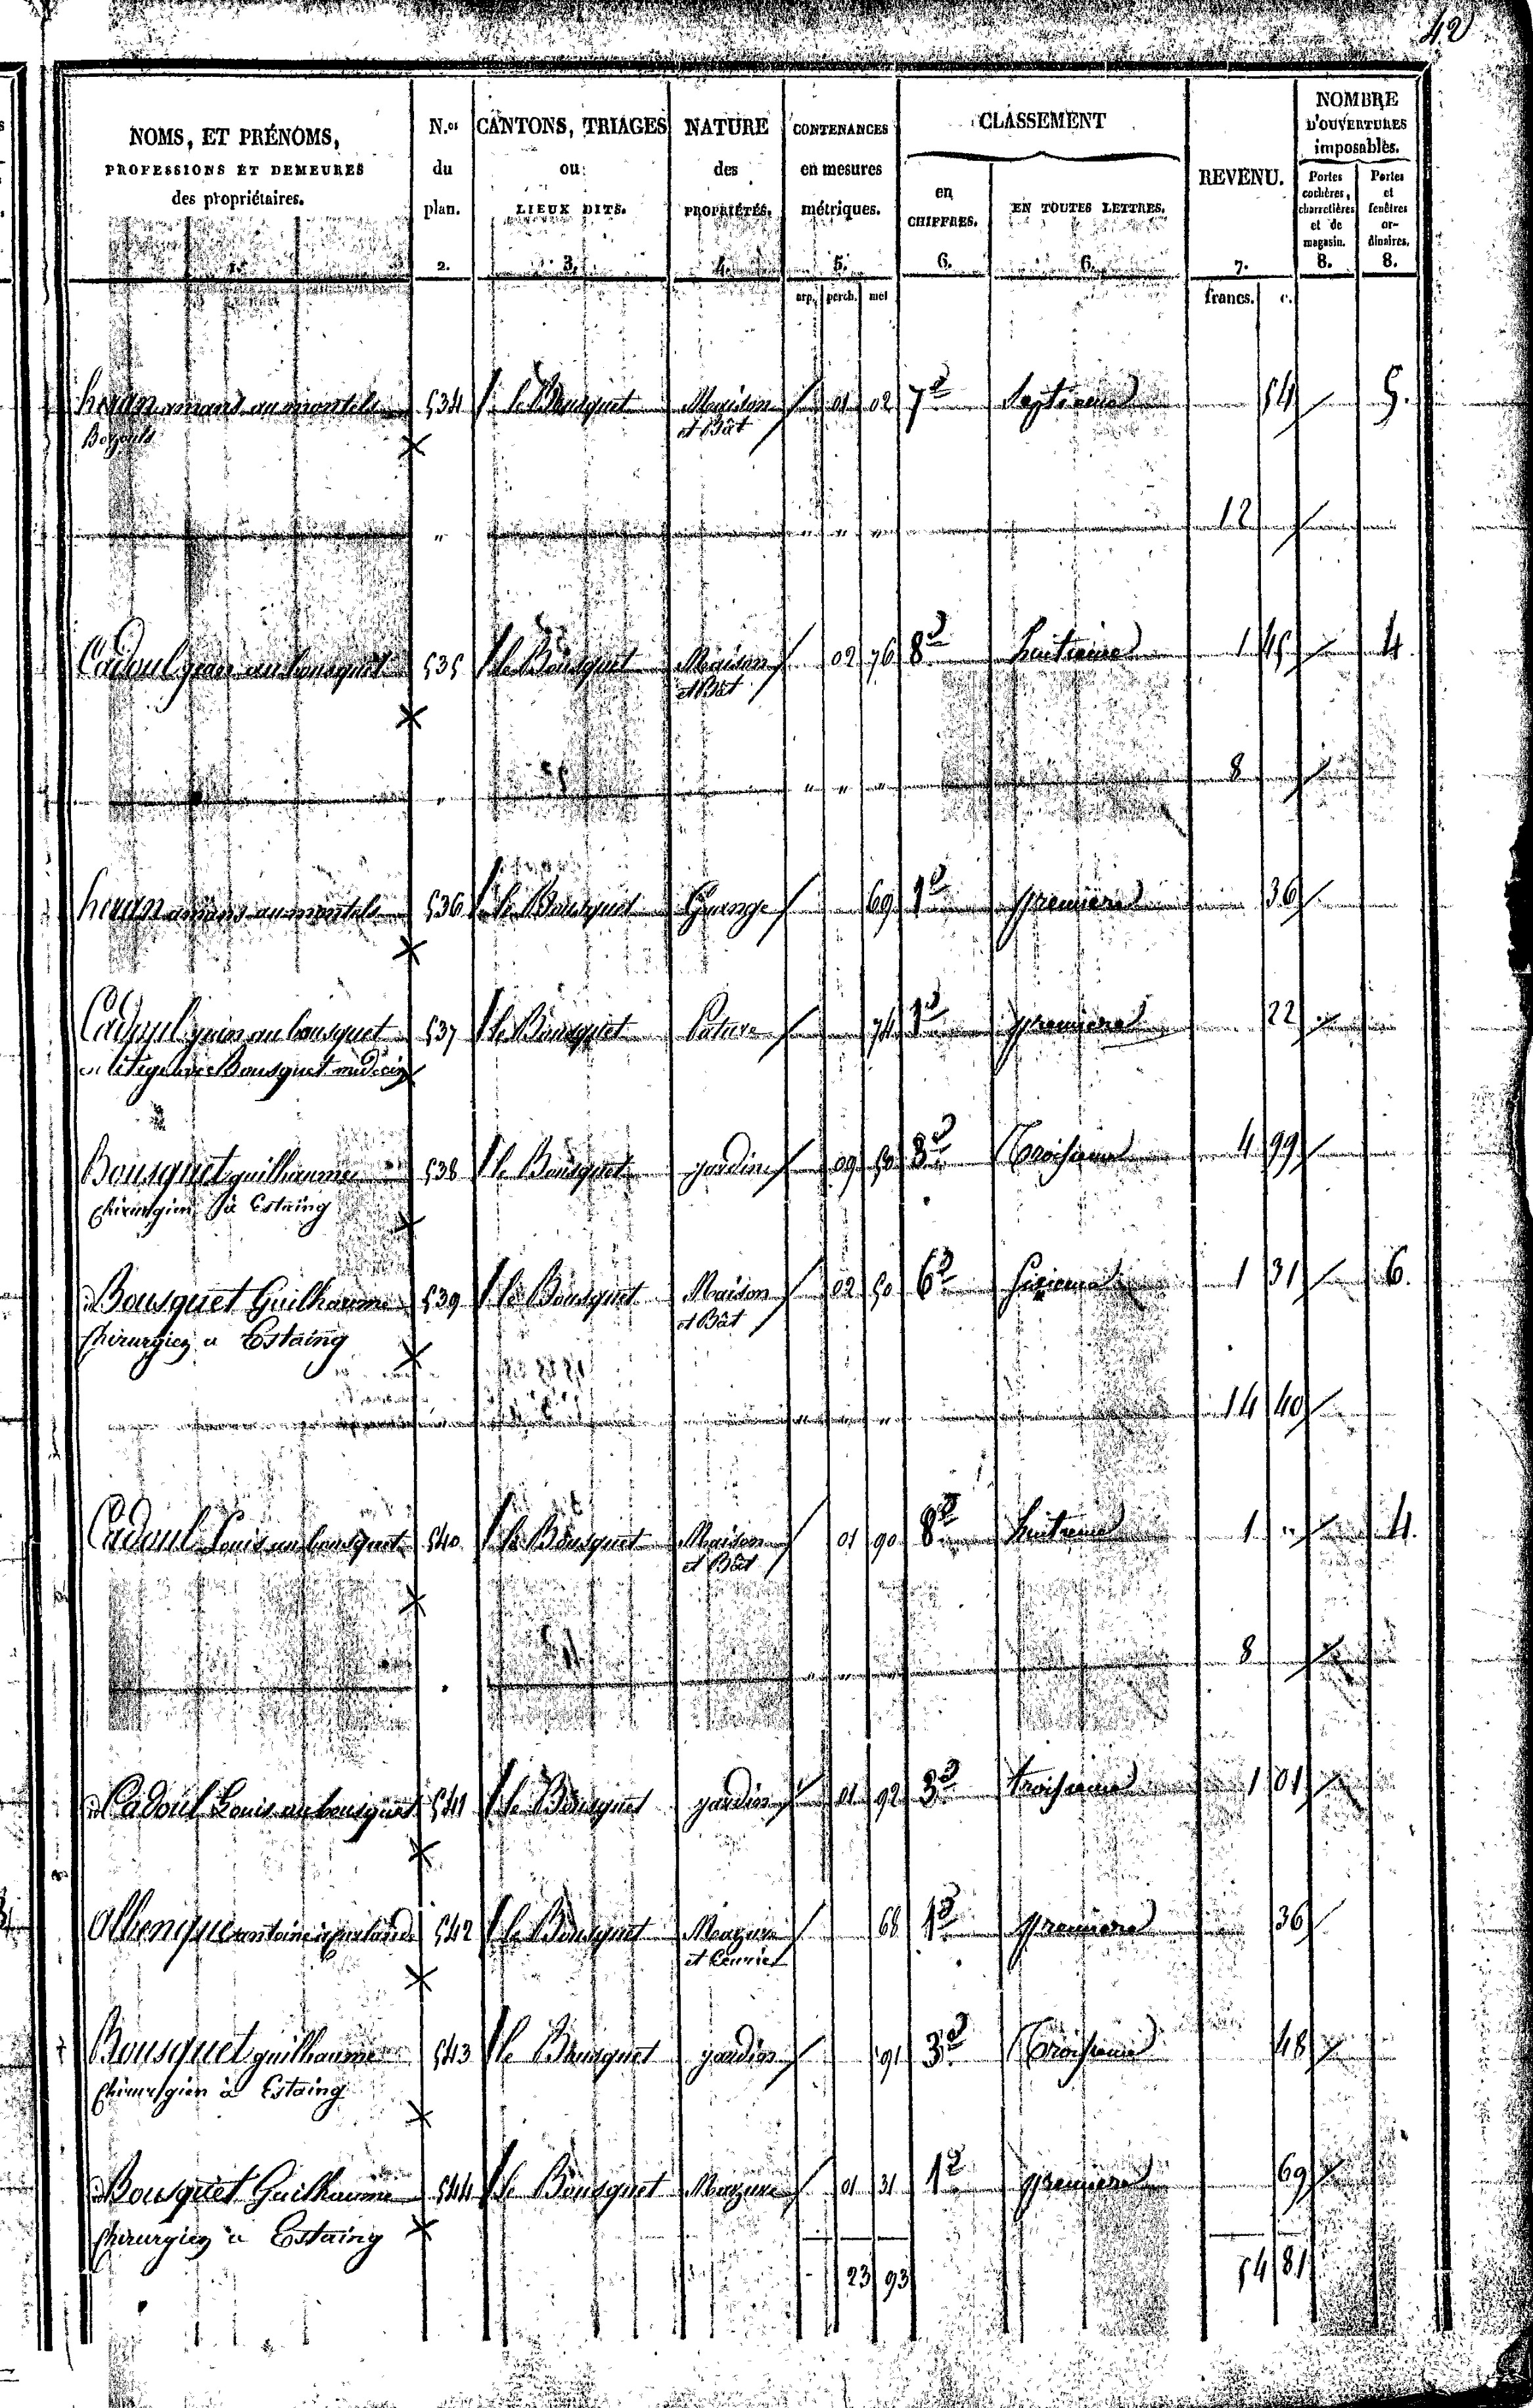 42
NOMS, ET PRÉNOMS, PROFESSIONS ET DEMEURES des propriétaires. 1.
N.os du plan. 2.
CANTONS, TRIAGES ou LIEUX DITS. 3.
NATURE des PROPRIÉTÉS. 4.
CONTENANCES en mesures métriques. 5.
CLASSEMENT
en CHIFFRES. 6.
EN TOUTES LETTRES. 6.
REVENU. 7.
NOMBRE D'OUVERTURES imposables.
Portes cochères, charretières et de magasin. 8.
Portes et fenêtres ordinaires. 8.
arp. perch. met francs. c.
amans au montels 534 le Bousquet Maison 01 02 7e Septieme 54 5.
et Bât
" " " " 12
Cadoul jean au bousquet 535 le Bousquet Maison 02 76 8e huitieme 1 45 4
et Bât
" " " " 8
amans au montels 536 le Bousquet Grange 69 1e premiere 36
Cadoul jean au bousquet 537 le Bousquet Pature 74 1e premiere 22
en litige avec Bousquet medecin
Bousquet guilhaume 538 le Bousquet jardin 09 50 3e Troisieme 4 99
chirurgien à Estaing
id Bousquet Guilhaume 539 le Bousquet Maison 02 50 6e Sixieme 1 31 6.
chirurgien a Estaing et Bât
" " " 14 40
Cadoul Louis au bousquet 540 le Bousquet Maison 01 90 8e huitieme 1 " 4.
et Bât
" " " 8
id Cadoul Louis au bousquet 541 le Bousquet jardin 01 92 3e troisieme 1 01
albenque antoine 542 le Bousquet Mazure 68 1e premiere 36
Bousquet guilhaume 543 le Bousquet jardin 91 3e Troisieme 48
chirurgien à Estaing
id Bousquet Guilhaume 544 le Bousquet Mazure 01 31 1e premiere 69
chirurgien a Estaing
23 93 54 81